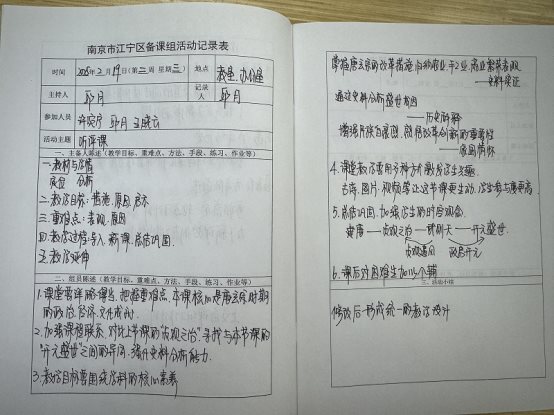 南京市江宁区备课组活动记录表
时间 2025年2月19日(第二周 星期三) 地点 教室、办公室
主持人 邱月 记录人 邱月
参加人员 许宛宁 邱月 王晓云
活动主题 听评课
一、主备人陈述(教学目标、重难点、方法、手段、练习、作业等)
一.教材与学情
定位 分析
二.教学目标:措施、原因、启示
三.重难点:表现、原因
四.教学过程:导入、新课、总结巩固
五.教学延伸
二、组员陈述(教学目标、重难点、方法、手段、练习、作业等)
1.课堂要详略得当,把握重难点,本课核心是唐玄宗时期
的政治、经济、文化成就
2.加强课程联系,对比上节课的“贞观之治”寻找与本节课的
“开元盛世”之间的异同,提升史料分析能力.
3.教学目标要围绕学科的核心素养
掌握唐玄宗的改革措施,归纳农业、手工业、商业繁荣表现
——史料实证
通过史料分析盛世成因
——历史解释
增强民族自豪感,感悟改革创新的重要性
——家国情怀
4.课堂教学要用多种方式激发学生兴趣.
古诗、图片、视频等让这节课更生动,学生参与度更高.
5.总结巩固,加强学生的时空观念.
建唐——贞观之治——武则天——开元盛世.
贞观遗风 政启开元
6.课后对困难生加以辅
三、活动小结
修改后形成统一的教学设计